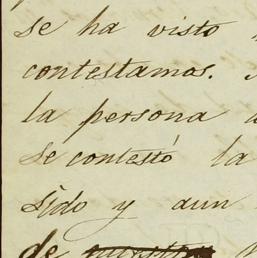 se ha visto
contestamos.
la persona
se contestó la
sido y aun
de